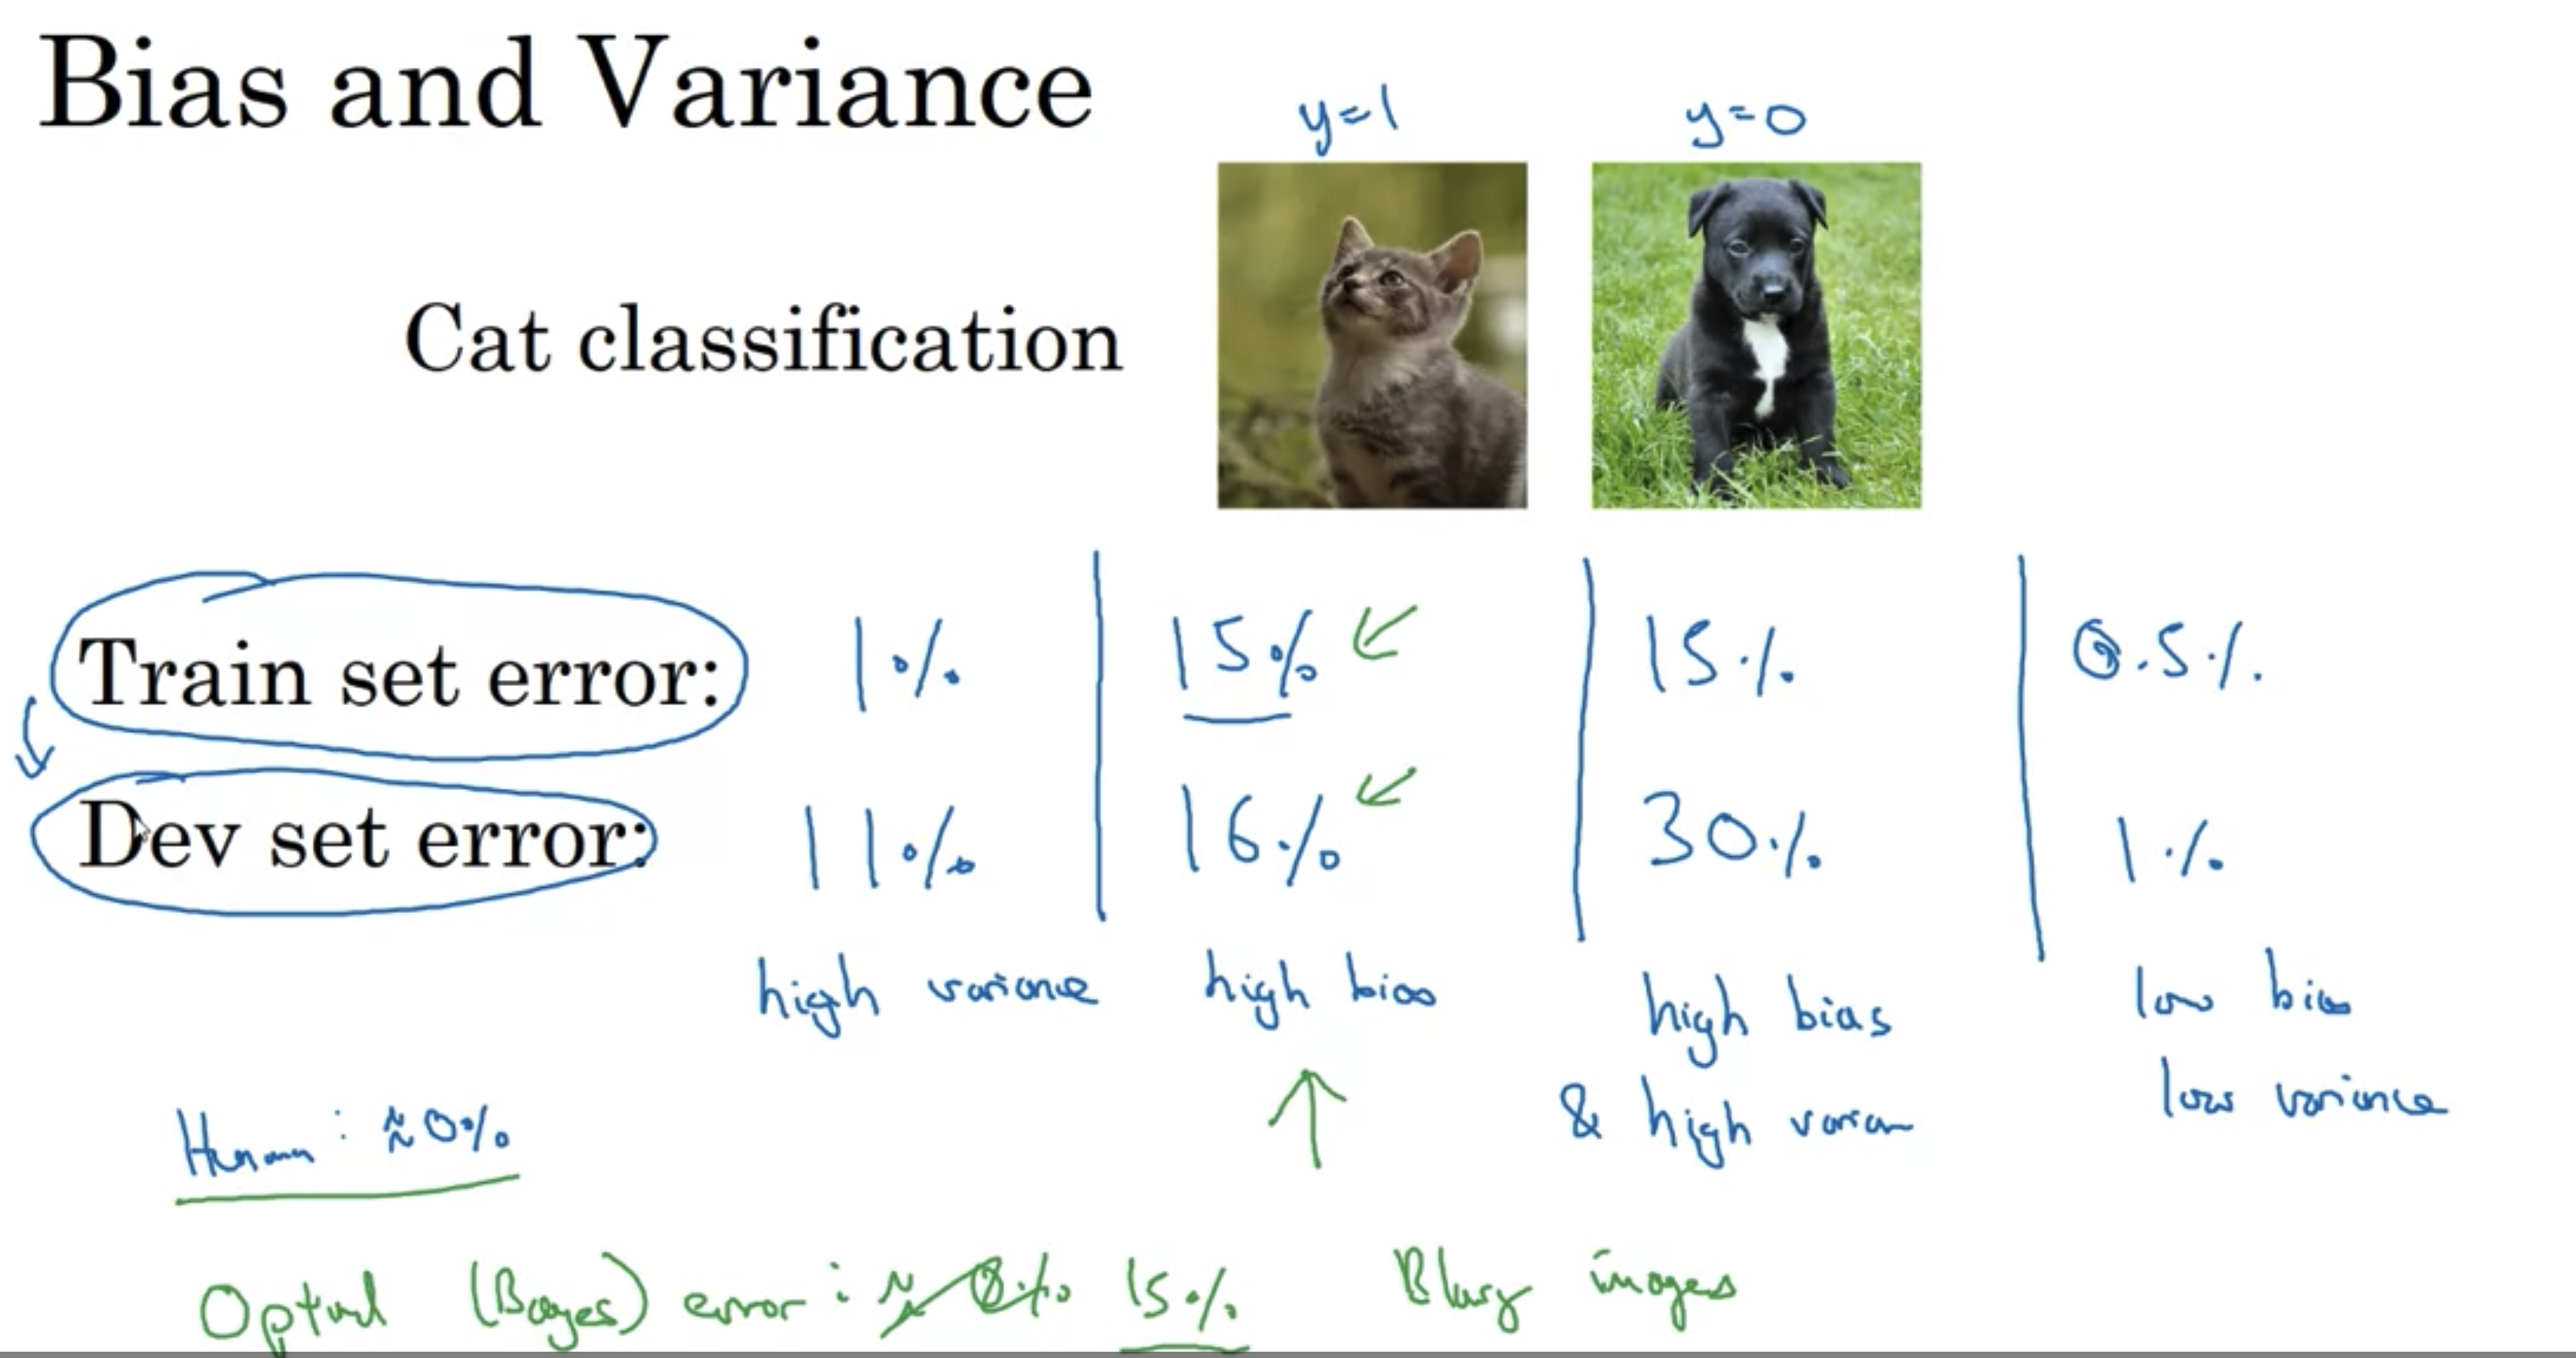 Bias and Variance
y=1 y=0
Cat classification
Train set error: 1% 15% 15% 0.5%
Dev set error: 11% 16% 30% 1%
high variance high bias high bias low bias
& high varian low variance
Human: ≈0%
Optimal (Bayes) error: ≈0% 15% Blurry images